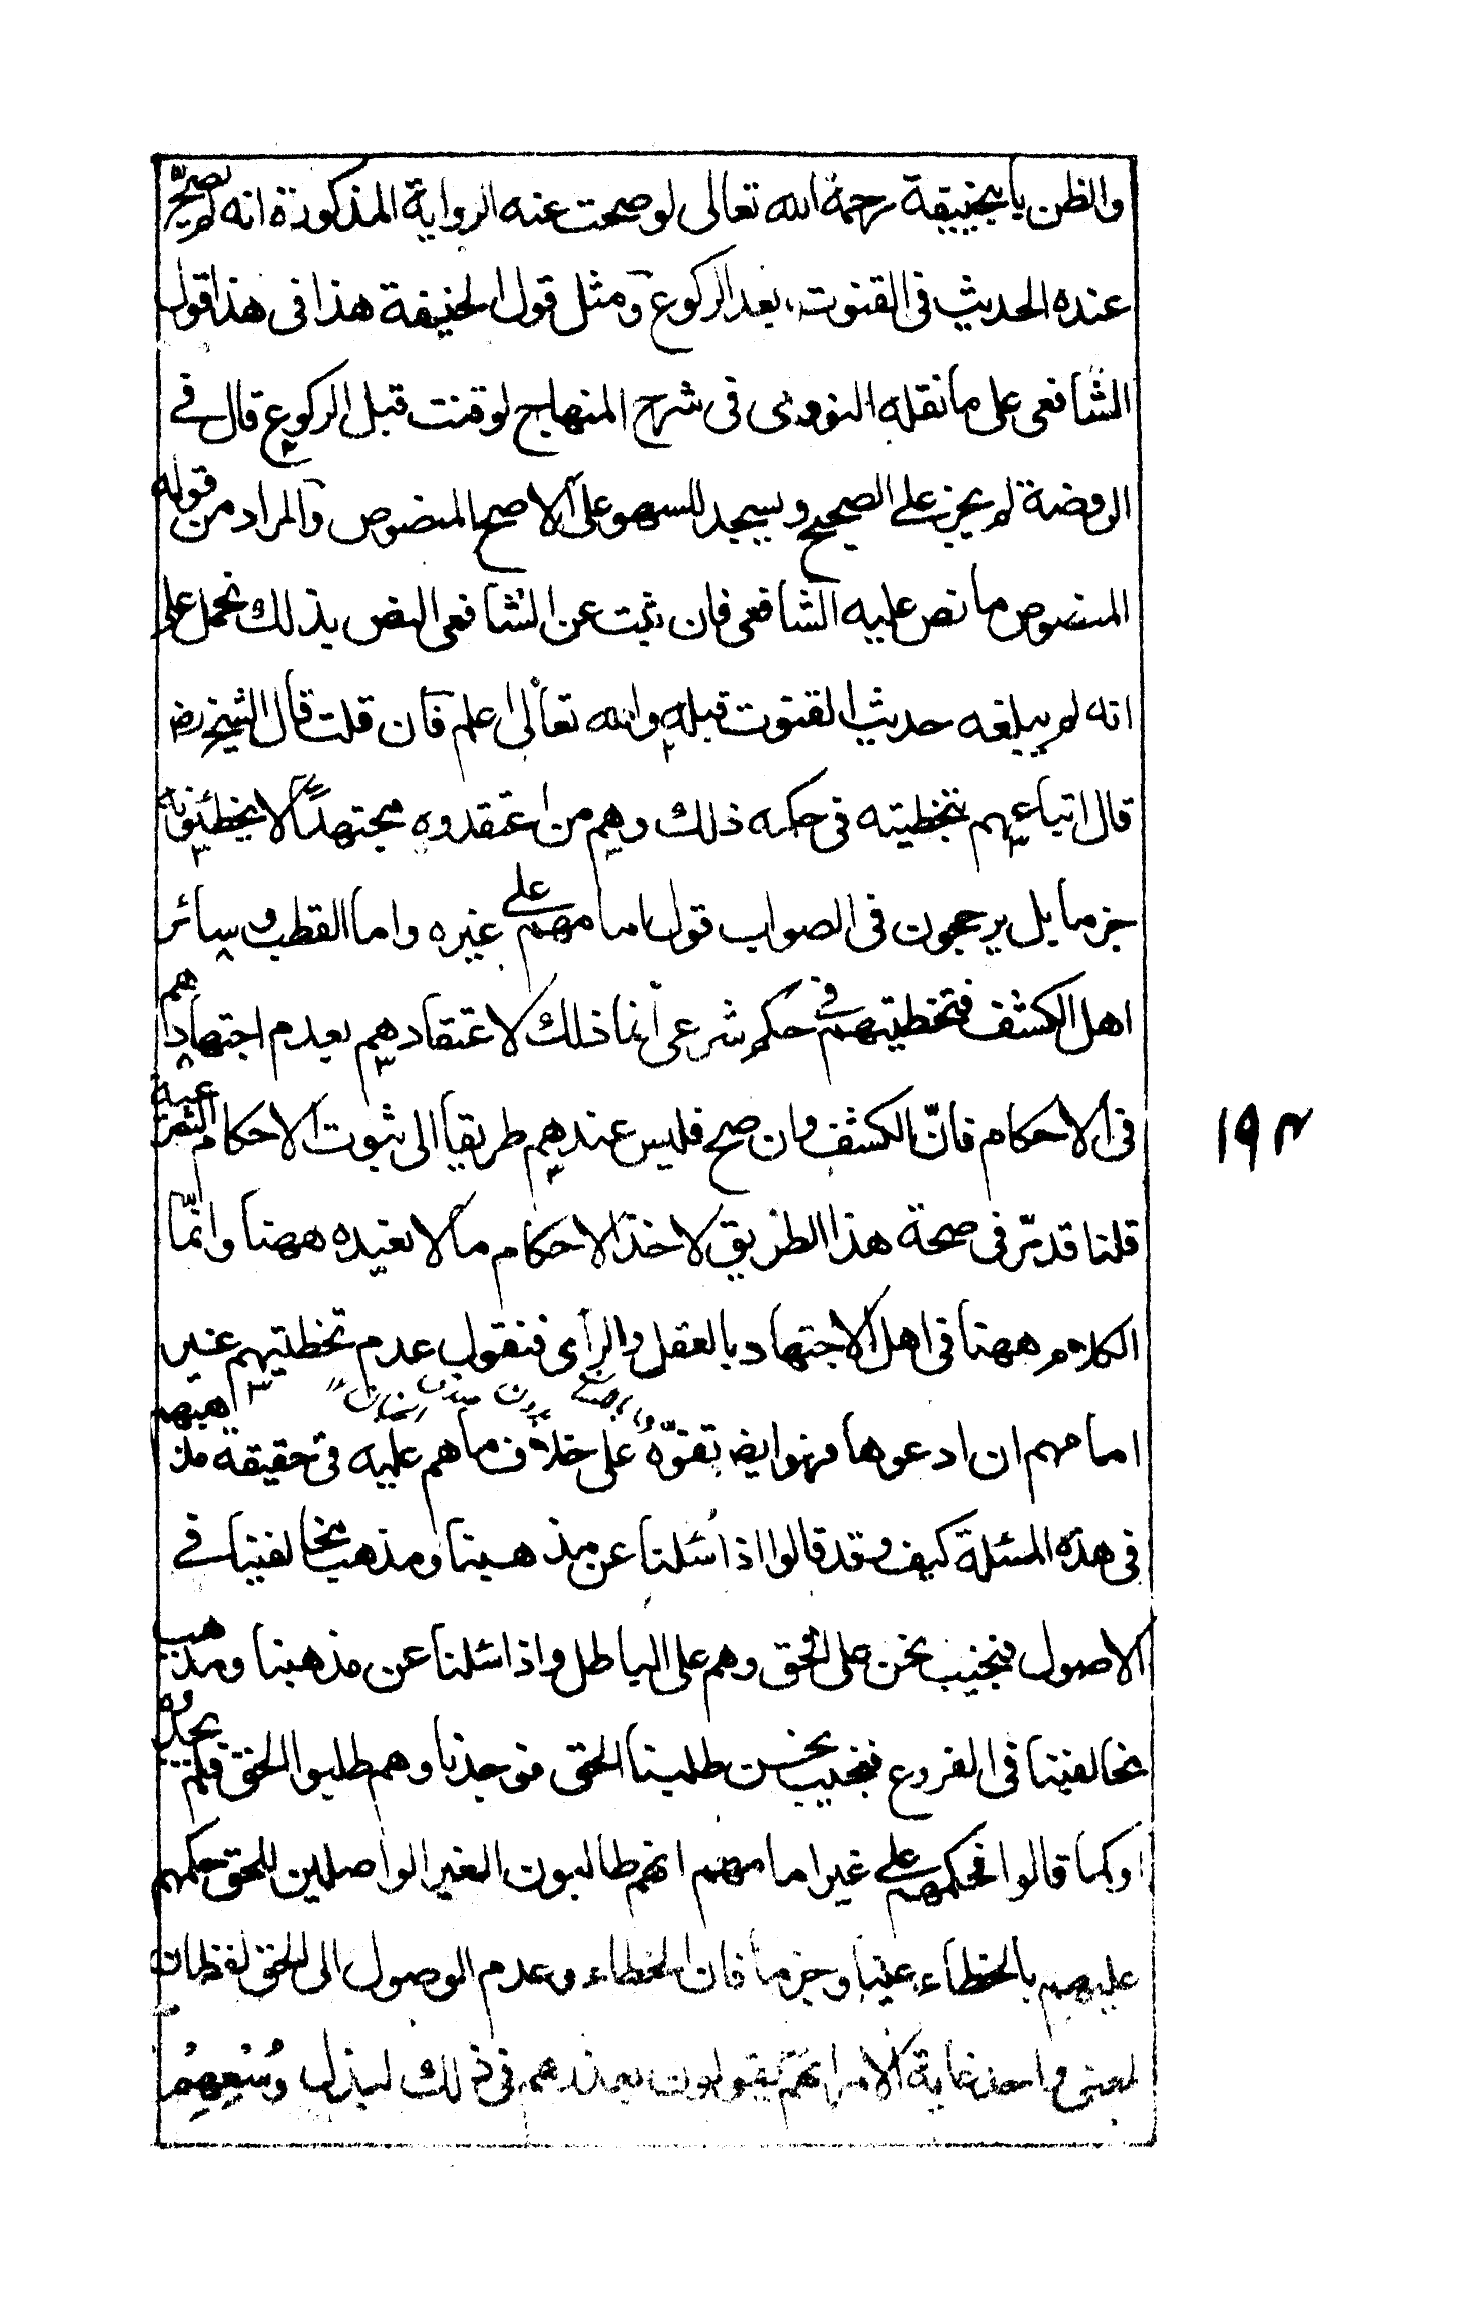 والظن بابيحنيفة رحمة الله تعالى لو صحت عنه الرواية المذكورة انه لم يصحّ
عنده الحديث فى القنوت بعد الركوع ومثل قول الحنيفة هذا فى هذا قول
الشافعى على ما نقله النووى فى شرح المنهاج لو قنت قبل الركوع قال فى
الروضة لم يجز على الصحيح ويسجد للسهو على الاصح المنصوص والمراد من قوله
المنصوص ما نص عليه الشافعى فان ثبت عن الشافعى النص بذلك نحمل على
انه لم يبلغه حديث القنوت قبله والله تعالى اعلم فان قلت قال الشيخ رضـ
قال اتباعهم بتخطيته فى حكمه ذلك وهم من اعتقدوه مجتهداً لا يخطئونه
جزما بل يرجحون فى الصواب قول امامهم على غيره واما القطب وسائر
اهل الكشف فتخطيتهم فى حكم شرعى انما ذلك لاعتقادهم بعدم اجتهادهم
فى الاحكام فانّ الكشف وان صح فليس عندهم طريقا الى ثبوت الاحكام الشرعية
قلنا قد مرّ فى صحة هذا الطريق لاخذ الاحكام ما لا نعيده ههنا وانّما
الكلام ههنا فى اهل الاجتهاد بالعقل والرأى فنقول عدم تخطيتهم غير
امامهم ان ادعوها فهو ايضـ تفوّه على خلاف ما هم عليه فى حقيقة مذاهبهم
فى هذه المسئلة كيف وقد قالوا اذا سُئلنا عن مذهبنا ومذهب مخالفينا فى
الاصول فنجيب نحن على الحق وهم على الباطل واذا سئلنا عن مذهبنا ومذهب
مخالفينا فى الفروع فنجيب نحن طلبنا الحق فوجدنا وهم طلبوا الحق فلم يجدُوُا
او كما قالوا فحكمهم على غير امامهم انهم طالبون الغير الواصلين للحق حكمهم
عليهم بالخطاء عينا وجزما فان الخطاء وعدم الوصول الى الحق لفظان
لمعنى واحد غاية الامر انهم يقولون بعذرهم فى ذلك لبذل وُسْعِهِمْ
١٩٣